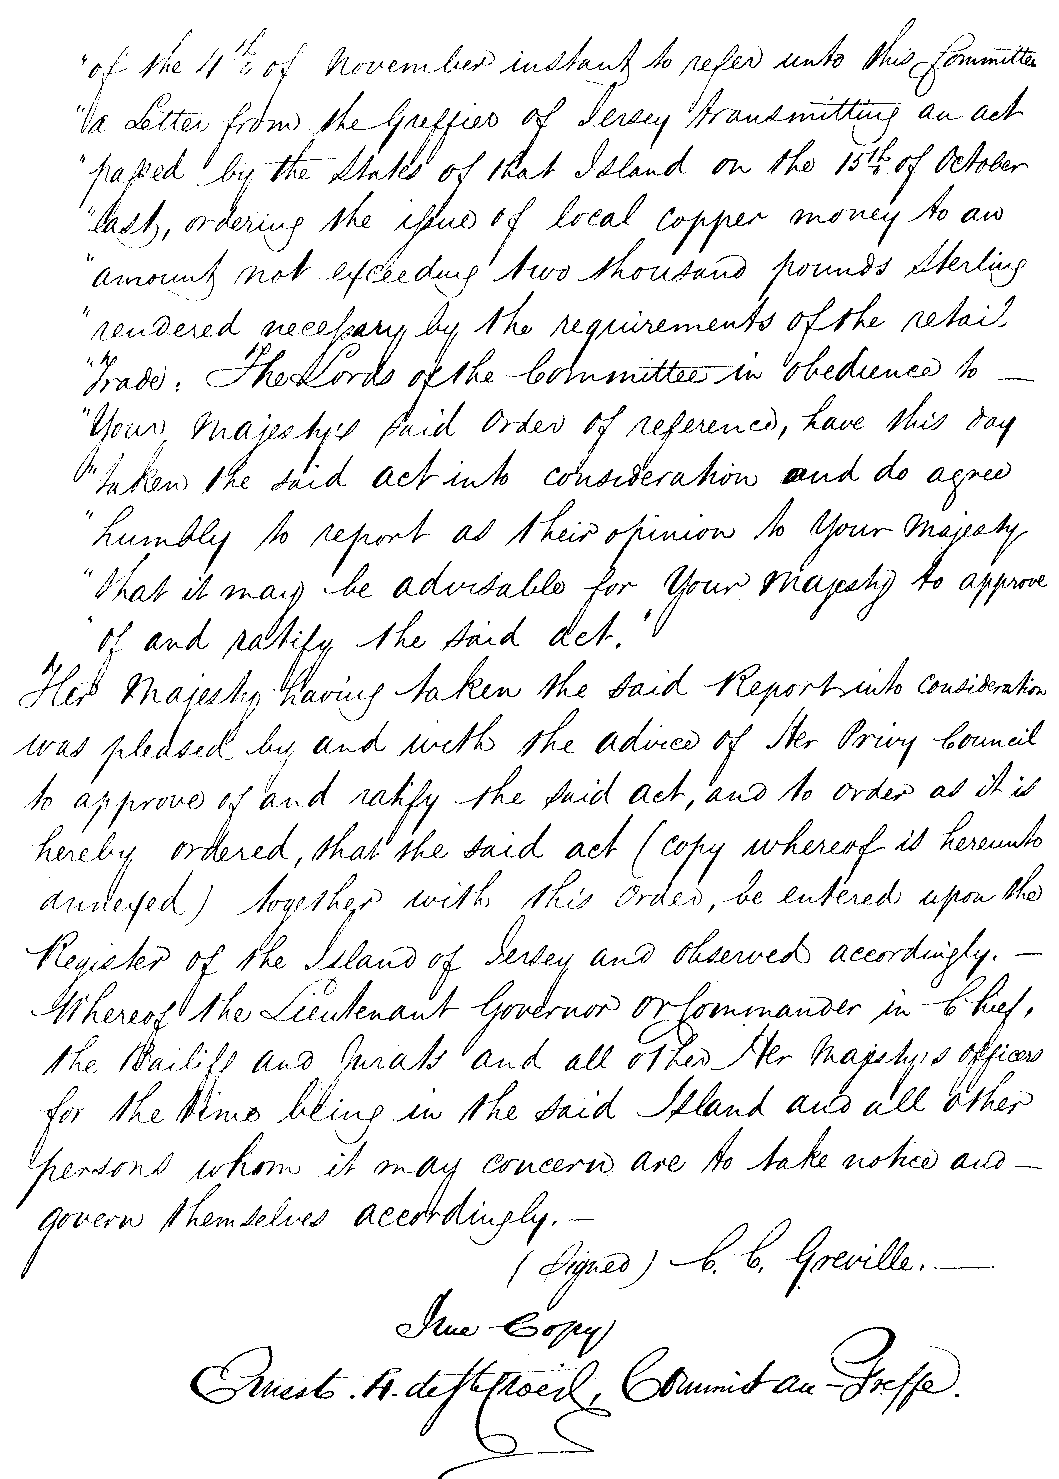 "of the 4th of November instant to refer unto this Committee
"a Letter from the Greffier of Jersey transmitting an act
"passed by the States of that Island on the 15th of October
"last, ordering the issue of local copper money to an
"amount not exceeding two thousand pounds Sterling
"rendered necessary by the requirements of the retail
"Trade: The Lords of the Committee in obedience to —
"Your Majesty's said Order of reference, have this day
"taken the said act into consideration and do agree
"humbly to report as their opinion to Your Majesty
"that it may be advisable for Your Majesty to approve
"of and ratify the said act."
Her Majesty having taken the said Report into consideration
was pleased by and with the advice of Her Privy Council
to approve of and ratify the said act, and to order as it is
hereby ordered, that the said act (copy whereof is hereunto
annexed) together with this Order, be entered upon the
Register of the Island of Jersey and observed accordingly. —
Whereof the Lieutenant Governor or Commander in Chief,
the Bailiff and Jurats and all other Her Majesty's officers
for the time being in the said Island and all other
persons whom it may concern are to take notice and —
govern themselves accordingly. —
(Signed) C. C. Greville. —
True Copy
Ernest. Commis au Greffe.